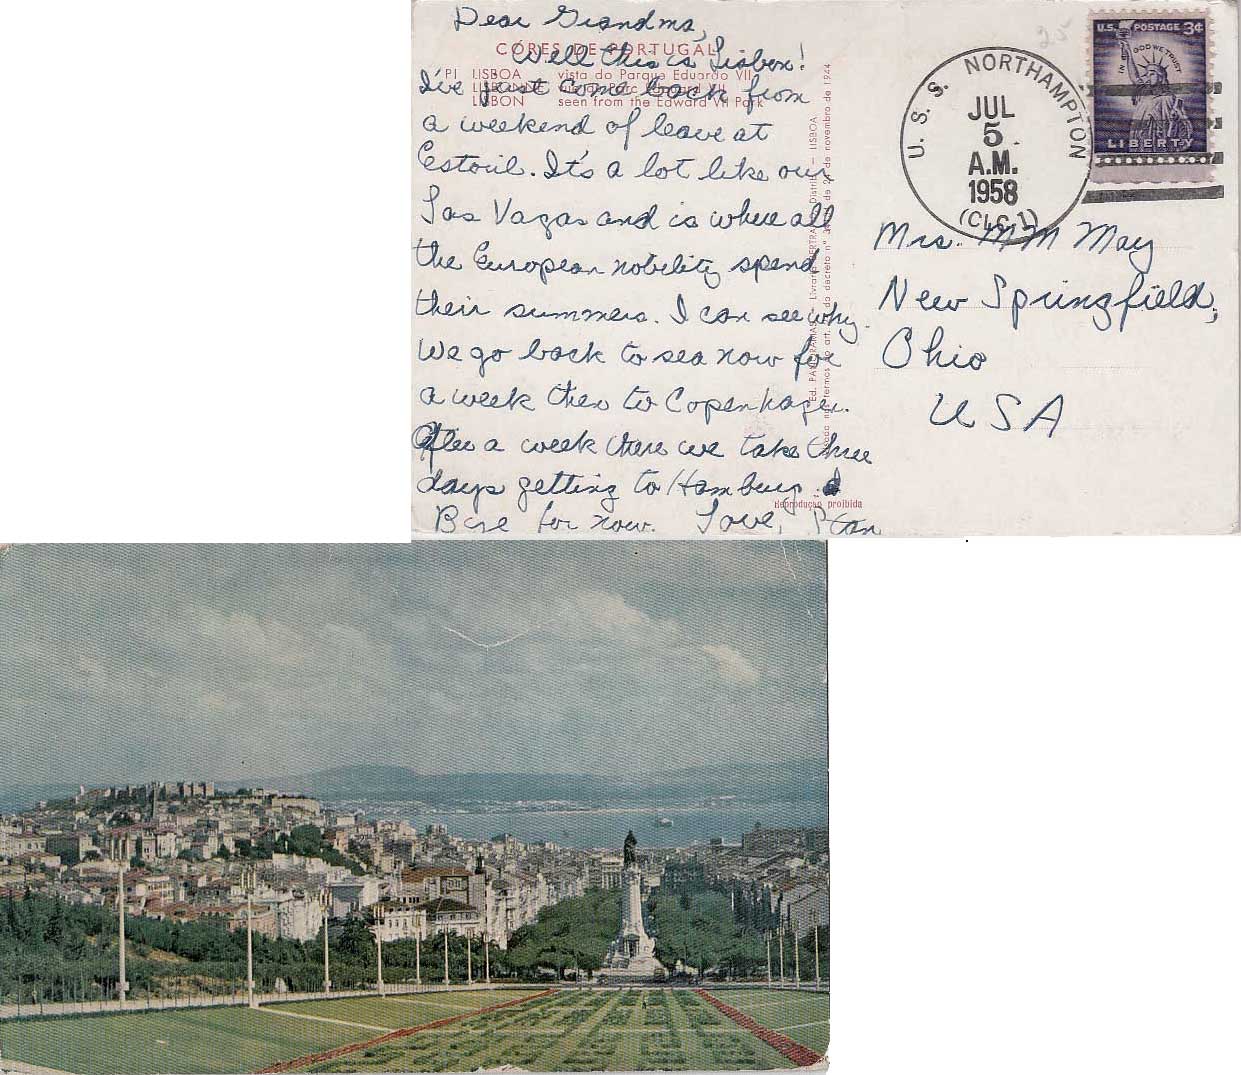 Dear Grandma,
Well this is Lisbon!
I've just come back from
a weekend of leave at
Estoril. It's a lot like our
Las Vagas and is where all
the European nobility spend
their summers. I can see why.
We go back to sea now for
a week then to Copenhagen.
After a week there we take three
days getting to Hamburg.
for now. Love, Stan
CÔRES DE PORTUGAL
PI LISBOA vista do Parque Eduardo VII
LISBONNE vue du Parc VII
LISBON seen from the Edward VII Park
Reprodução proibida
U.S.S. NORTHAMPTON
JUL
5
A.M.
1958
(CLC-1)
U.S. POSTAGE 3¢
IN GOD WE TRUST
LIBERTY
Mrs. M M May
New Springfield,
Ohio
USA